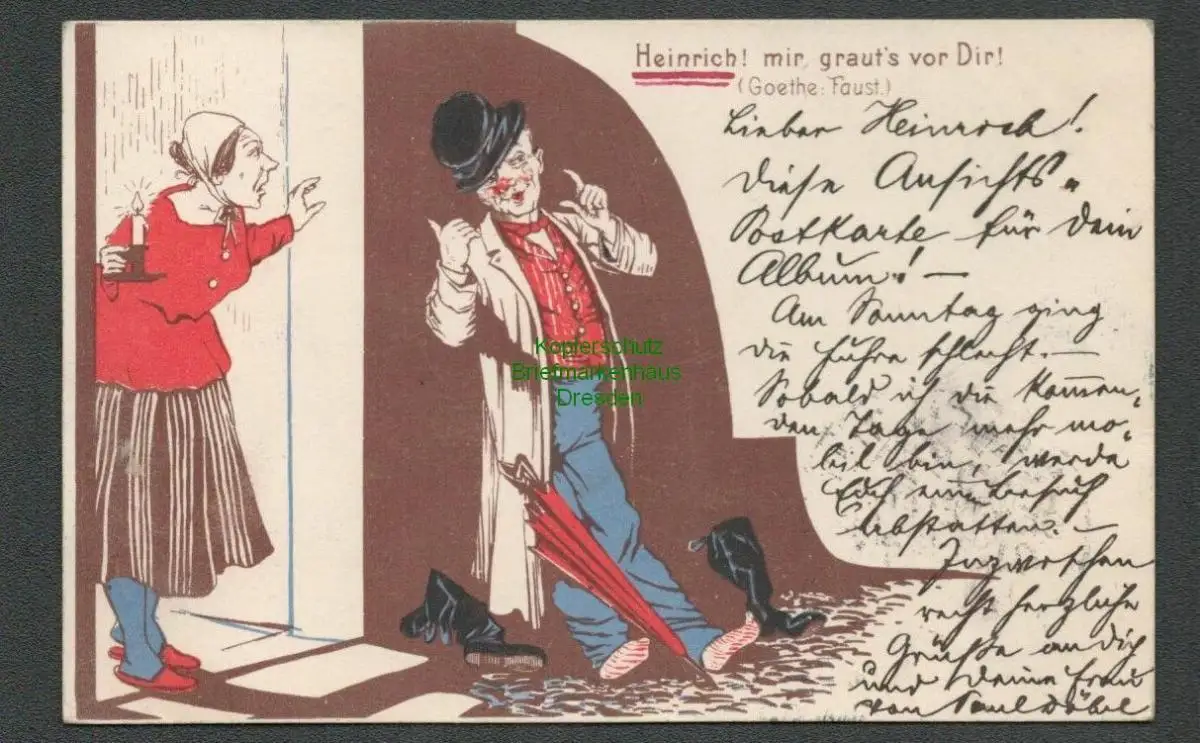 Heinrich! mir graut's vor Dir!
(Goethe: Faust.)
Lieber Heinrich!
Diese Ansichts-
Postkarte für Dein
Album! —
Am Sonntag ging
die Fuhre schlecht. —
Sobald ich die kommen-
den Tage mehr mo-
bil bin, werde
Euch einen Besuch
abstatten. —
Inzwischen
recht herzliche
Grüße an Dich
und Deine Frau
von Paul Döbel
Kopierschutz
Briefmarkenhaus
Dresden